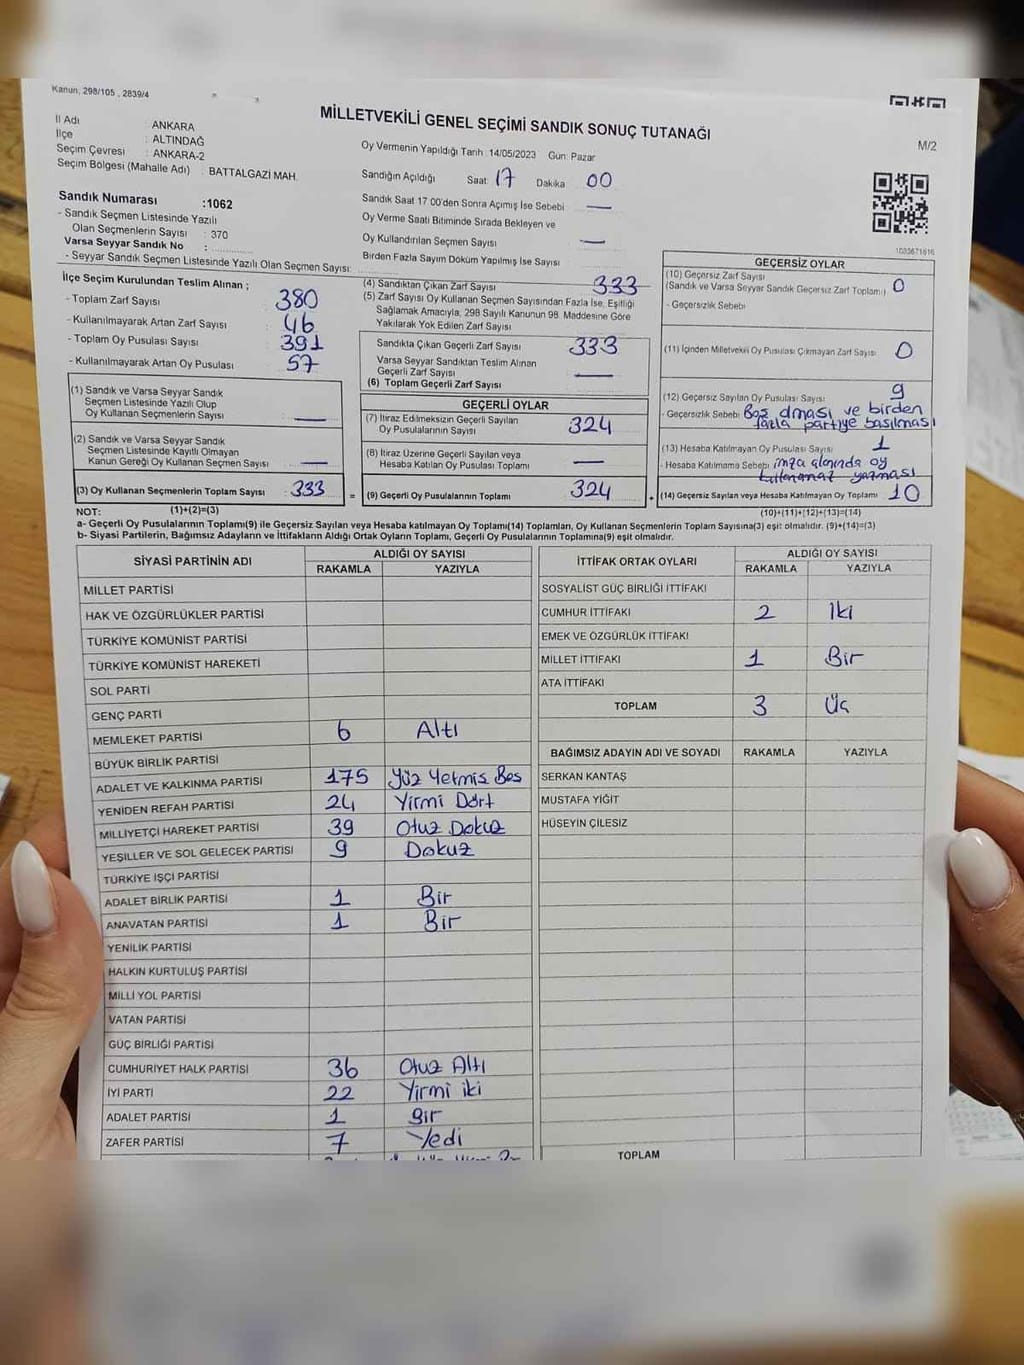 Kanun, 298/105 , 2839/4
MİLLETVEKİLİ GENEL SEÇİMİ SANDIK SONUÇ TUTANAĞI
M/2
İl Adı : ANKARA
İlçe : ALTINDAĞ
Seçim Çevresi : ANKARA-2
Seçim Bölgesi (Mahalle Adı) : BATTALGAZİ MAH.
Oy Vermenin Yapıldığı Tarih :14/05/2023 Gün: Pazar
Sandığın Açıldığı Saat: 17 Dakika 00
Sandık Saat 17 00'den Sonra Açımış İse Sebebi —
Oy Verme Saati Bitiminde Sırada Bekleyen ve
Oy Kullandırılan Seçmen Sayısı —
Birden Fazla Sayım Döküm Yapılmış İse Sayısı
Sandık Numarası :1062
- Sandık Seçmen Listesinde Yazılı
Olan Seçmenlerin Sayısı : 370
Varsa Seyyar Sandık No :
- Seyyar Sandık Seçmen Listesinde Yazılı Olan Seçmen Sayısı:
1033671616
İlçe Seçim Kurulundan Teslim Alınan ;
- Toplam Zarf Sayısı 380
- Kullanılmayarak Artan Zarf Sayısı 46
- Toplam Oy Pusulası Sayısı 391
- Kullanılmayarak Artan Oy Pusulası 57
(1) Sandık ve Varsa Seyyar Sandık
Seçmen Listesinde Yazılı Olup
Oy Kullanan Seçmenlerin Sayısı —
(2) Sandık ve Varsa Seyyar Sandık
Seçmen Listesinde Kayıtlı Olmayan
Kanun Gereği Oy Kullanan Seçmen Sayısı —
(3) Oy Kullanan Seçmenlerin Toplam Sayısı 333
(4) Sandıktan Çıkan Zarf Sayısı 333
(5) Zarf Sayısı Oy Kullanan Seçmen Sayısından Fazla İse, Eşitliği
Sağlamak Amacıyla, 298 Sayılı Kanunun 98. Maddesine Göre
Yakılarak Yok Edilen Zarf Sayısı
Sandıkta Çıkan Geçerli Zarf Sayısı 333
Varsa Seyyar Sandıktan Teslim Alınan
Geçerli Zarf Sayısı —
(6) Toplam Geçerli Zarf Sayısı
GEÇERLİ OYLAR
(7) İtiraz Edilmeksizin Geçerli Sayılan
Oy Pusulalarının Sayısı 324
(8) İtiraz Üzerine Geçerli Sayılan veya
Hesaba Katılan Oy Pusulası Toplamı —
= (9) Geçerli Oy Pusulalarının Toplamı 324
GEÇERSİZ OYLAR
(10) Geçersiz Zarf Sayısı
(Sandık ve Varsa Seyyar Sandık Geçersiz Zarf Toplamı) 0
- Geçersizlik Sebebi
(11) İçinden Milletvekili Oy Pusulası Çıkmayan Zarf Sayısı 0
(12) Geçersiz Sayılan Oy Pusulası Sayısı 9
- Geçersizlik Sebebi Boş olması ve birden
fazla partiye basılması
(13) Hesaba Katılmayan Oy Pusulası Sayısı 1
- Hesaba Katılmama Sebebi imza alanında oy
kullanamaz yazması
+ (14) Geçersiz Sayılan veya Hesaba Katılmayan Oy Toplamı 10
NOT: (1)+(2)=(3)
(10)+(11)+(12)+(13)=(14)
a- Geçerli Oy Pusulalarının Toplamı(9) ile Geçersiz Sayılan veya Hesaba katılmayan Oy Toplamı(14) Toplamları, Oy Kullanan Seçmenlerin Toplam Sayısına(3) eşit olmalıdır. (9)+(14)=(3)
b- Siyasi Partilerin, Bağımsız Adayların ve İttifakların Aldığı Ortak Oyların Toplamı, Geçerli Oy Pusulalarının Toplamına(9) eşit olmalıdır.
SİYASİ PARTİNİN ADI ALDIĞI OY SAYISI
RAKAMLA YAZIYLA
MİLLET PARTİSİ
HAK VE ÖZGÜRLÜKLER PARTİSİ
TÜRKİYE KOMÜNİST PARTİSİ
TÜRKİYE KOMÜNİST HAREKETİ
SOL PARTİ
GENÇ PARTİ
MEMLEKET PARTİSİ 6 Altı
BÜYÜK BİRLİK PARTİSİ
ADALET VE KALKINMA PARTİSİ 175 Yüz Yetmiş Beş
YENİDEN REFAH PARTİSİ 24 Yirmi Dört
MİLLİYETÇİ HAREKET PARTİSİ 39 Otuz Dokuz
YEŞİLLER VE SOL GELECEK PARTİSİ 9 Dokuz
TÜRKİYE İŞÇİ PARTİSİ
ADALET BİRLİK PARTİSİ 1 Bir
ANAVATAN PARTİSİ 1 Bir
YENİLİK PARTİSİ
HALKIN KURTULUŞ PARTİSİ
MİLLİ YOL PARTİSİ
VATAN PARTİSİ
GÜÇ BİRLİĞİ PARTİSİ
CUMHURİYET HALK PARTİSİ 36 Otuz Altı
İYİ PARTİ 22 Yirmi iki
ADALET PARTİSİ 1 Bir
ZAFER PARTİSİ 7 Yedi
İTTİFAK ORTAK OYLARI ALDIĞI OY SAYISI
RAKAMLA YAZIYLA
SOSYALİST GÜÇ BİRLİĞİ İTTİFAKI
CUMHUR İTTİFAKI 2 İki
EMEK VE ÖZGÜRLÜK İTTİFAKI
MİLLET İTTİFAKI 1 Bir
ATA İTTİFAKI
TOPLAM 3 Üç
BAĞIMSIZ ADAYIN ADI VE SOYADI RAKAMLA YAZIYLA
SERKAN KANTAŞ
MUSTAFA YİĞİT
HÜSEYİN ÇİLESIZ
TOPLAM